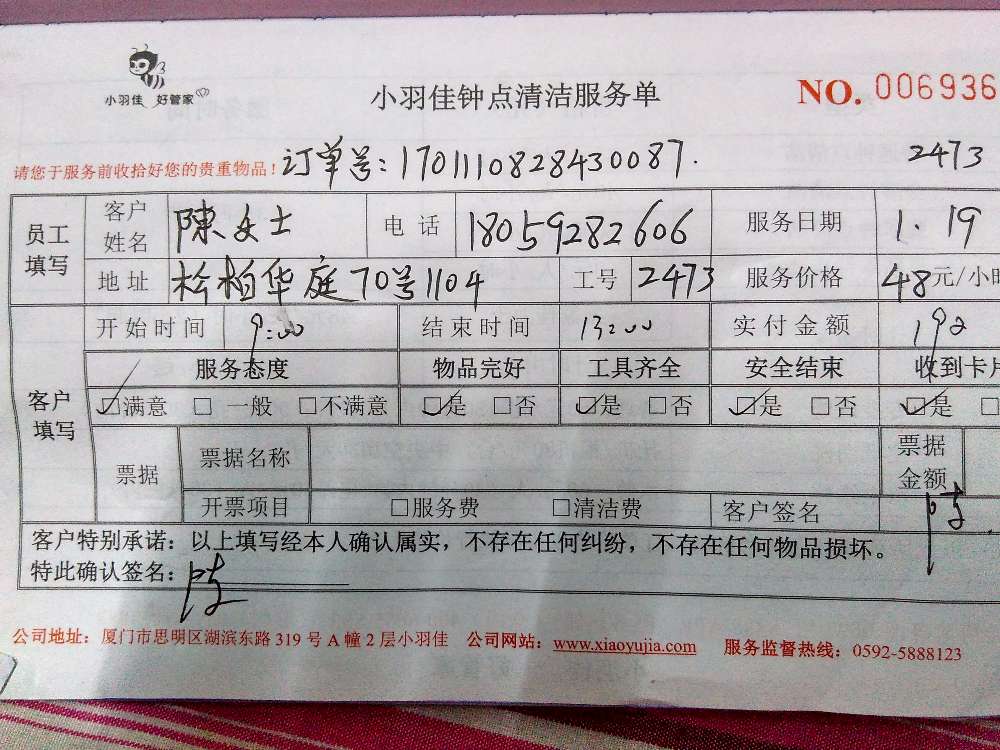 小羽佳 好管家
小羽佳钟点清洁服务单
NO. 006936
请您于服务前收拾好您的贵重物品! 订单号:1701110828430087. 2473
员工填写 客户姓名 陳女士 电话 18059282606 服务日期 1.19
地址 松柏华庭70号1104 工号 2473 服务价格 48元/小时
客户填写 开始时间 9:00 结束时间 13:00 实付金额 192
服务态度 物品完好 工具齐全 安全结束 收到卡片
☑满意 □ 一般 □不满意 ☑是 □否 ☑是 □否 ☑是 □否 ☑是 □
票据 票据名称 票据金额
开票项目 □服务费 □清洁费 客户签名
客户特别承诺:以上填写经本人确认属实,不存在任何纠纷,不存在任何物品损坏。
特此确认签名:
公司地址:厦门市思明区湖滨东路 319 号 A 幢 2 层小羽佳 公司网站:www.xiaoyujia.com 服务监督热线:0592-5888123